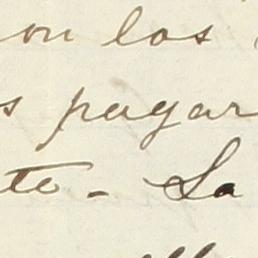 on los
s pagar
te - La